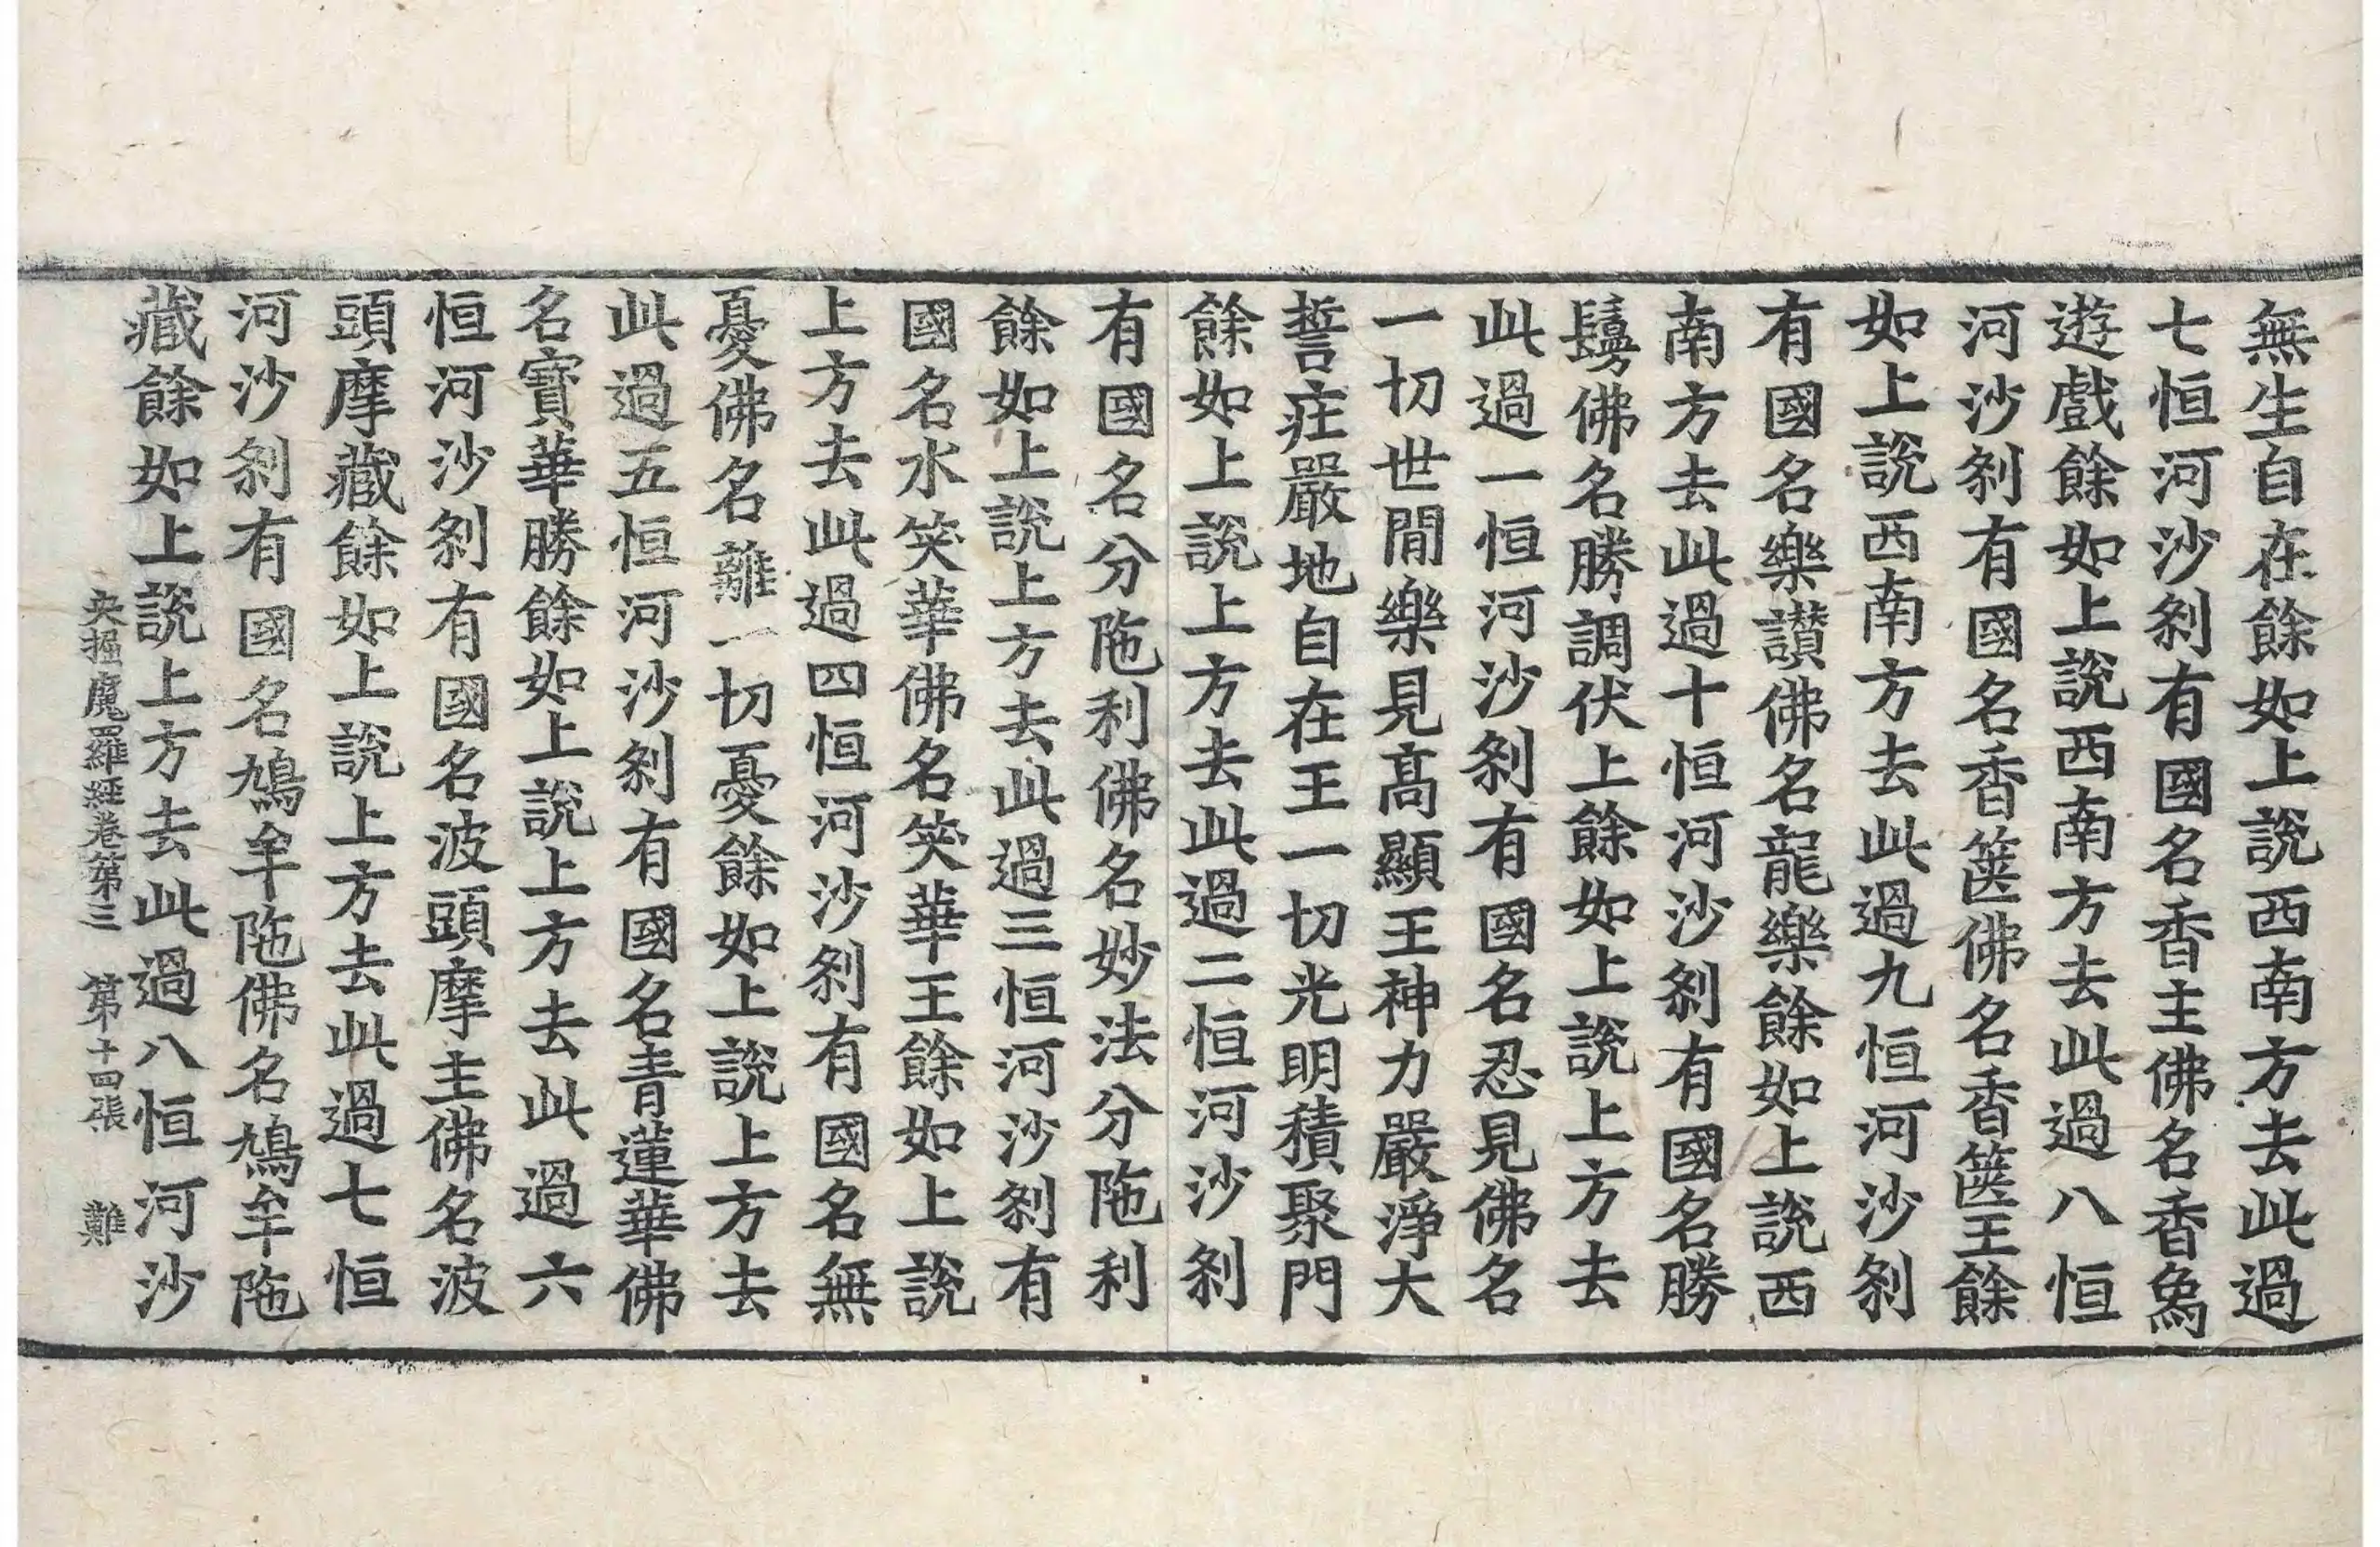 無生自在餘如上說西南方去此過
七恒河沙剎有國名香主佛名香象
遊戲餘如上說西南方去此過八恒
河沙剎有國名香篋佛名香篋王餘
如上說西南方去此過九恒河沙剎
有國名樂讚佛名龍樂餘如上說西
南方去此過十恒河沙剎有國名勝
鬘佛名勝調伏上餘如上說上方去
此過一恒河沙剎有國名忍見佛名
一切世間樂見高顯王神力嚴淨大
誓莊嚴地自在王一切光明積聚門
餘如上說上方去此過二恒河沙剎
有國名分陁利佛名妙法分陁利
餘如上說上方去此過三恒河沙剎有
國名水笑華佛名笑華王餘如上說
上方去此過四恒河沙剎有國名無
憂佛名離一切憂餘如上說上方去
此過五恒河沙剎有國名青蓮華佛
名寶華勝餘如上說上方去此過六
恒河沙剎有國名波頭摩主佛名波
頭摩藏餘如上說上方去此過七恒
河沙剎有國名鳩牟陁佛名鳩牟陁
藏餘如上說上方去此過八恒河沙
央掘魔羅經卷第三 第十四張 難